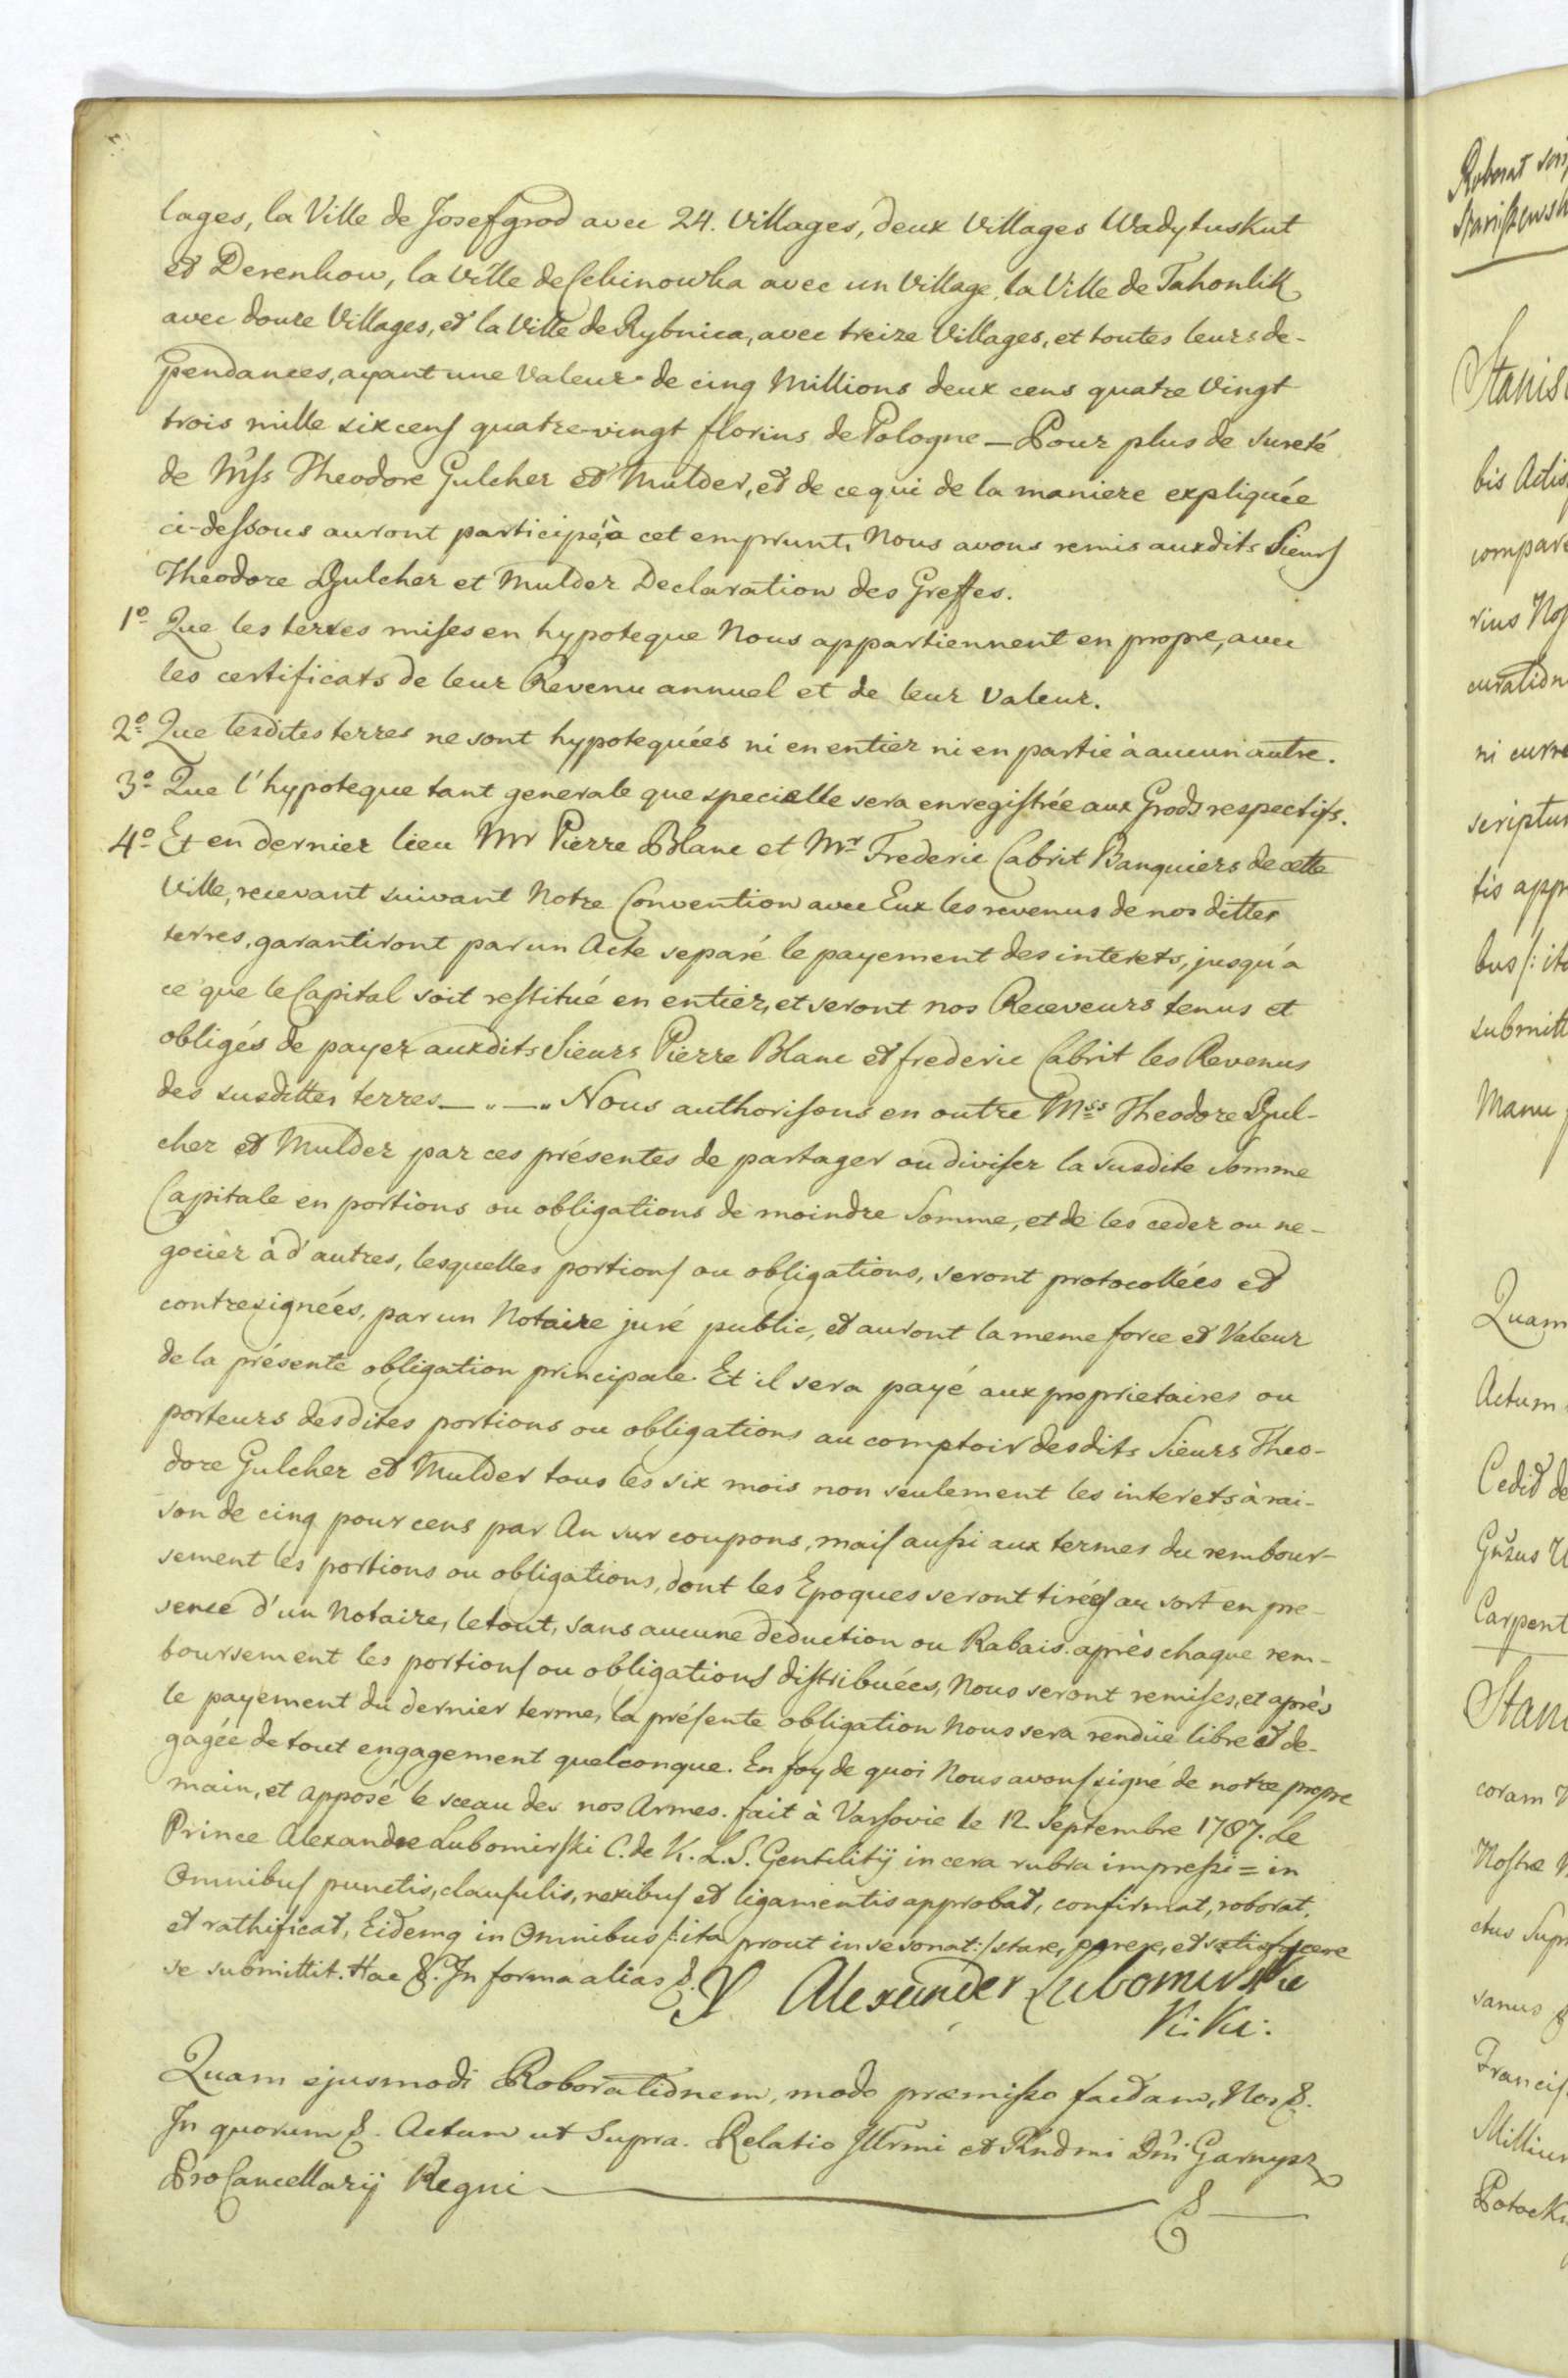 lages, la Ville de Josefgrod avec 24. Villages, deux Villages Wadytuskut
et Derenkow, la Ville de Czehinowka avec un Village, la Ville de Tahonlik
avec douze Villages, et la Ville de Rybnica, avec treize Villages, et toutes leurs de-
pendances, ayant une Valeur de cinq Millions deux cens quatre Vingt
trois mille six cens quatre-vingt florins de Pologne — Pour plus de sureté
de Mss Theodore Gulcher et Mulder, et de ce qui de la maniere expliquée
ci-dessous auront participé à cet emprunt, Nous avons remis auxdits Sieurs
Theodore Gulcher et Mulder Declaration des Greffes.
1o Que les terres mises en hypoteque Nous appartiennent en propre, avec
les certificats de leur Revenu annuel et de leur Valeur.
2o Que lesdites terres ne sont hypotequées ni en entier ni en partie à aucun autre.
3o Que l'hypoteque tant generale que specielle sera enregistrée aux Grods respectifs.
4o Et en dernier lieu Mr Pierre Blanc et Mr Frederic Cabrit Banquiers de cette
Ville, recevant suivant Notre Convention avec Eux les revenus de nos dittes
terres, garantiront par un Acte separé le payement des interets, jusqu'a
ce que le Capital soit restitué en entier, et seront nos Receveurs tenus et
obligés de payer auxdits Sieurs Pierre Blanc et frederic Cabrit les Revenus
des susdittes terres — " — " Nous authorisons en outre Mss Theodore Gul-
cher et Mulder par ces présentes de partager ou diviser la susdite somme
Capitale en portions ou obligations de moindre Somme, et de les ceder ou ne-
gocier à d'autres, lesquelles portions ou obligations, seront protocollées et
contresignées, par un Notaire juré public, et auront la meme force et Valeur
de la présente obligation principale. Et il sera payé aux proprietaires ou
porteurs desdites portions ou obligations au comptoir desdits Sieurs Theo-
dore Gulcher et Mulder tous les six mois non seulement les interets à rai-
son de cinq pour cens par An sur coupons, mais aussi aux termes du rembour-
sement les portions ou obligations, dont les Epoques seront tirées au sort en pre-
sence d'un Notaire, le tout, sans aucune deduction ou Rabais. après chaque rem-
boursement les portions ou obligations distribuées, Nous seront remises, et après
le payement du dernier terme, la présente obligation Nous sera rendüe libre et de-
gagée de tout engagement quelconque. En foy de quoi Nous avons signé de notre propre
main, et apposé le sceau des nos Armes. fait à Varsovie le 12 Septembre 1787. Le
Prince Alexandre Lubomirski C. de K. L.S. Gentilitij in cera rubra impressi = in
Omnibus punctis, clausulis, nexibus et ligamentis approbat, confirmat, roborat,
et rathificat, Eidemq in Omnibus /: ita prout in se sonat :/ stare, parere, et satisfacere
se submittit. Hac &. In forma alias &. X Alexander Lubomirski
K: Ki:
Quam ejusmodi Roborationem, modo præmisso factam, Nos &.
In quorum &. Actum ut Supra. Relatio Illrmi et Rndmi Dni Garnysz
Pro Cancellarij Regni — & —
Roborat
Stanis
bis Actis
compare
rius Nos
curation
ni curre
scriptur
tis appr
bus /: ita
submitt
Manu
Quam
Actum
Cedit de
Carpent
Stani
coram
Nostræ
ctus Supr
sanus &
Francis
Potocki